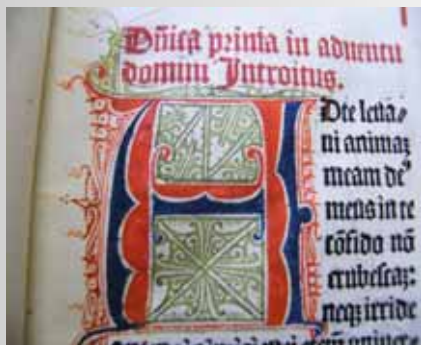 Dñica prima in aduentu
domini Introitus.
A
Dte leua⸗
ni animaꝫ
meam deꝰ
meus in te
cōfido nō
erubescaꝫ:
neqꝫ irride